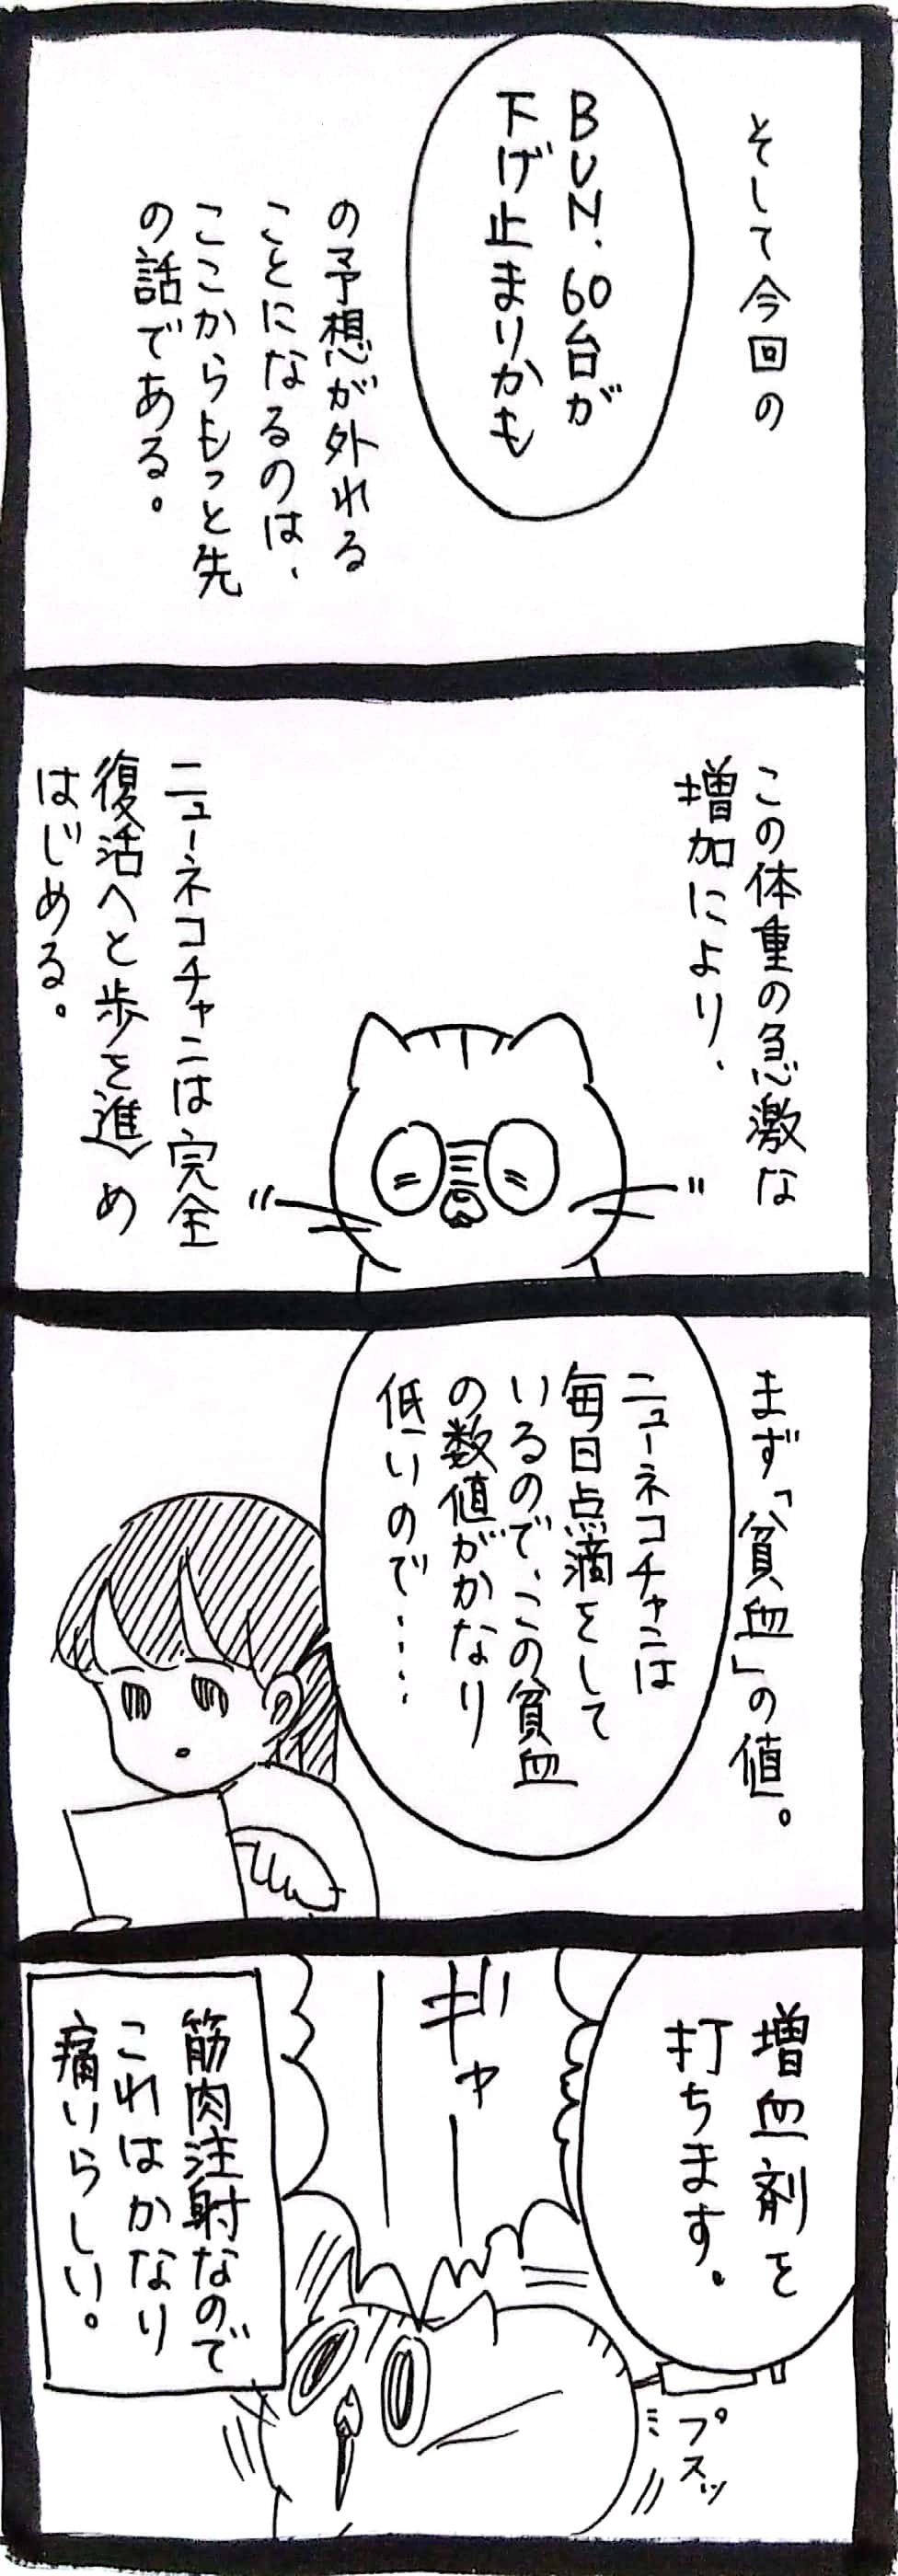 そして今回の
BUN、60台が
下げ止まりかも
の予想が外れる
ことになるのは、
ここからもっと先
の話である。
この体重の急激な
増加により、
ニューネコチャンは完全
復活へと歩を進め
はじめる。
まず「貧血」の値。
ニューネコチャンは
毎日点滴をして
いるので、この貧血
の数値がかなり
低いので....
増血剤を
打ちます。
ギャ||
プスッ
筋肉注射なので
これはかなり
痛いらしい。